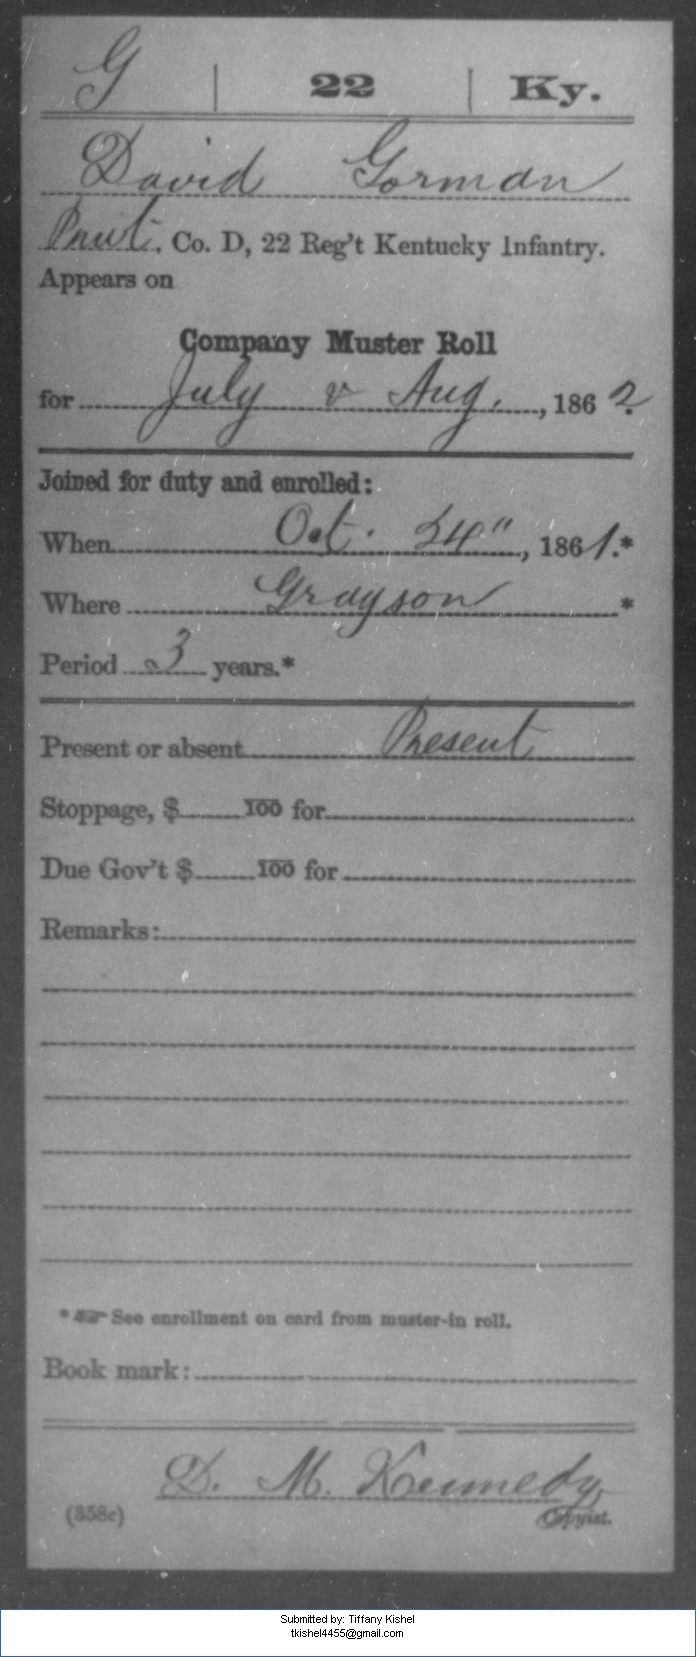 G | 22 | Ky.
David Gorman
Privt., Co. D, 22 Reg't Kentucky Infantry.
Appears on
Company Muster Roll
for July & Aug., 1862.
Joined for duty and enrolled:
When Oct. 24", 1861.*
Where Grayson *
Period 3 years.*
Present or absent Present
Stoppage, $ 100 for
Due Gov't $ 100 for
Remarks:
* ☞ See enrollment on card from muster-in roll.
Book mark:
D. M. Kennedy
(358c) Copyist.
Submitted by: Tiffany Kishel
tkishel4455@gmail.com